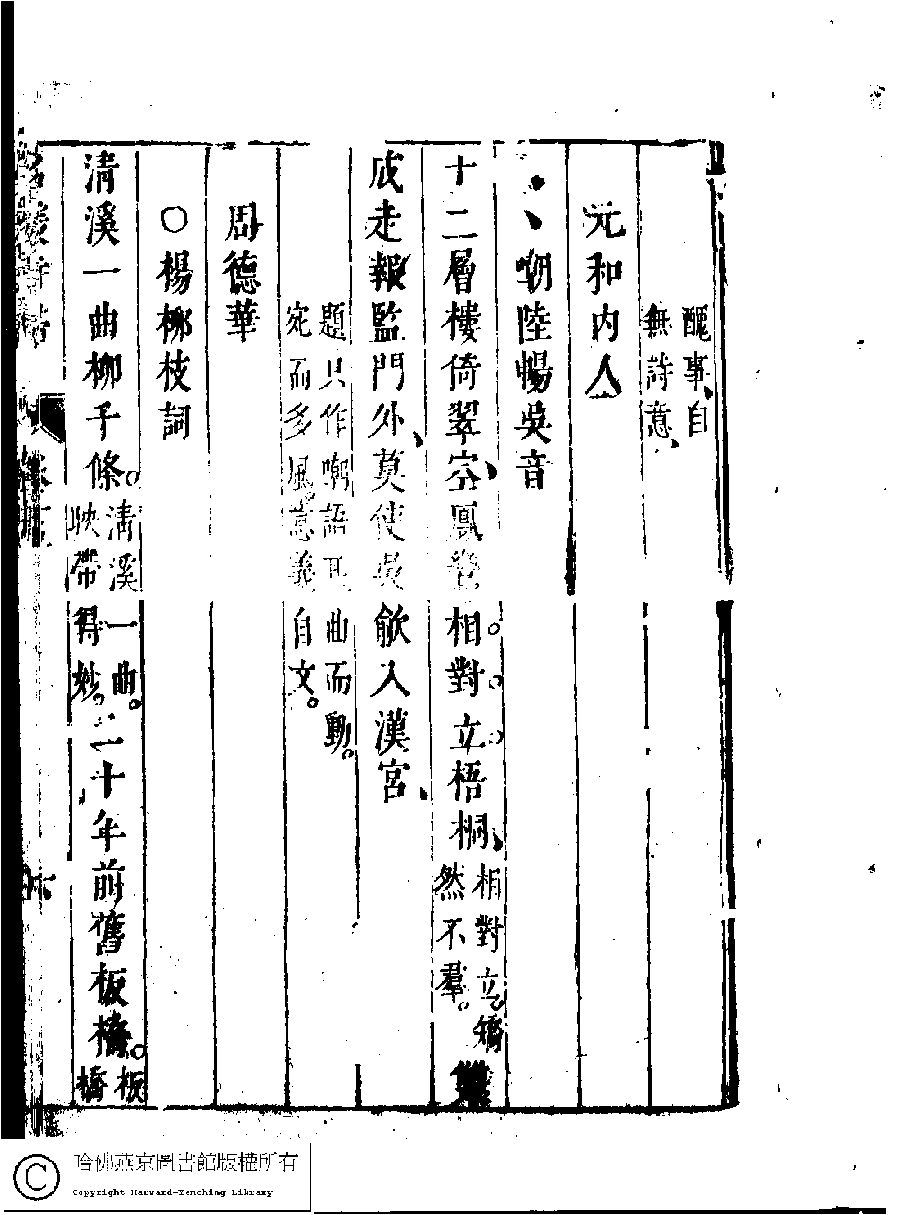 醜事自
無詩意
元和内人
嘲陸暢吳音
十二層樓倚翠空鳳鸞相對立梧桐
相對立矯
然不羣
雙
成走報監門外莫使吳歈入漢宮
題只作嘲語耳曲而動
宛而多風意義自文
周德華
○楊柳枝詞
清溪一曲柳千條
清溪一曲
映帶得妙
二十年前舊板橋
板
橋
哈佛燕京圖書館版權所有
Copyright Harvard-Yenching Library